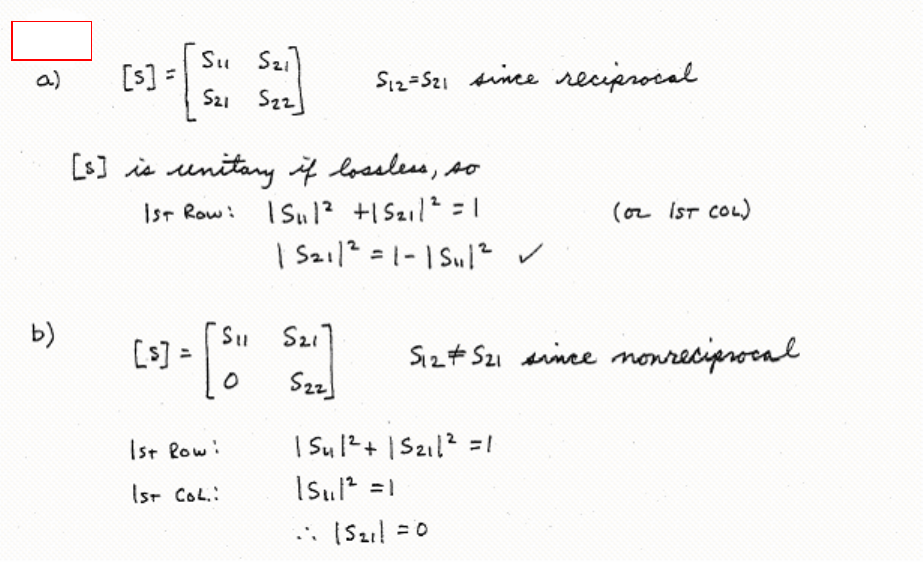 a) [S] = [S11 S21
S21 S22] S12=S21 since reciprocal
[S] is unitary if lossless, so
1ST ROW: |S11|² + |S21|² = 1 (OR 1ST COL)
|S21|² = 1 - |S11|² ✓
b) [S] = [S11 S21
0 S22] S12≠S21 since nonreciprocal
1ST ROW: |S11|² + |S21|² = 1
1ST COL.: |S11|² = 1
∴ |S21| = 0